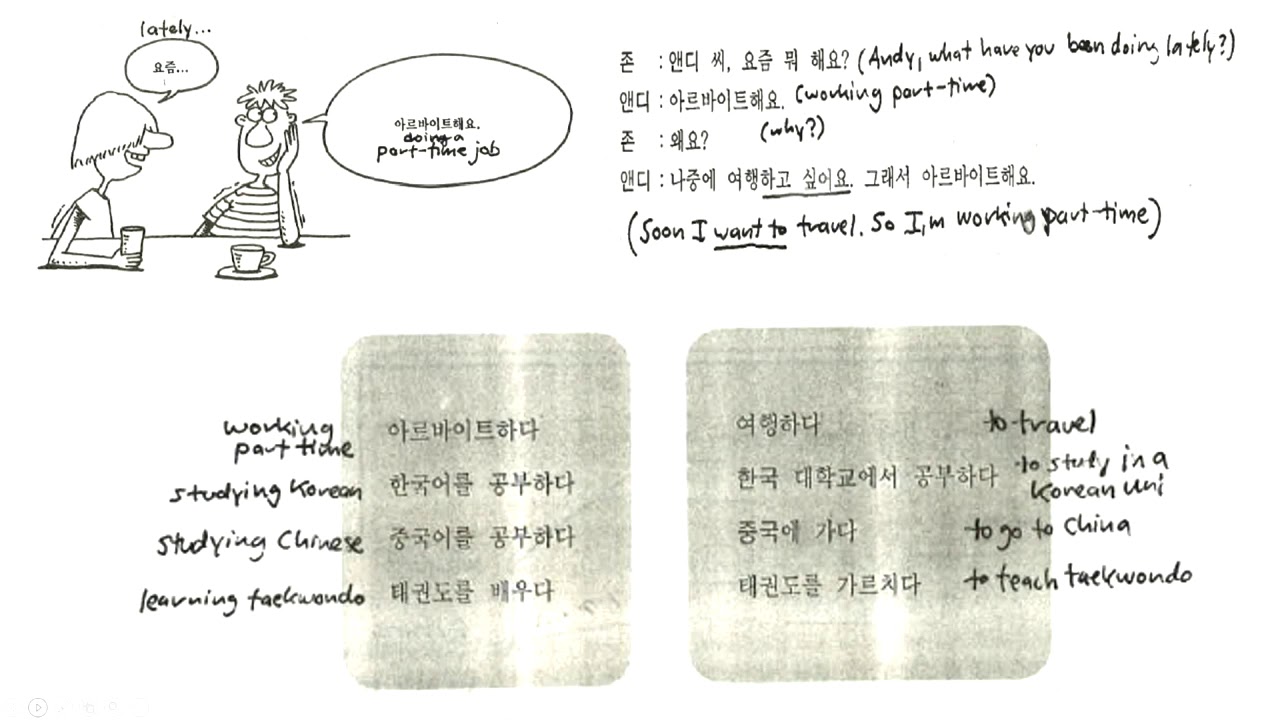 lately...
요즘...
아르바이트해요.
doing a
part-time job
존 : 앤디 씨, 요즘 뭐 해요? (Andy, what have you been doing lately?)
앤디 : 아르바이트해요. (working part-time)
존 : 왜요? (why?)
앤디 : 나중에 여행하고 싶어요. 그래서 아르바이트해요.
(Soon I want to travel. So I,m working part-time)
working
part time
아르바이트하다
studying Korean 한국어를 공부하다
studying Chinese 중국어를 공부하다
learning taekwondo 태권도를 배우다
여행하다 to travel
한국 대학교에서 공부하다 to study in a
Korean uni
중국에 가다 to go to China
태권도를 가르치다 to teach taekwondo